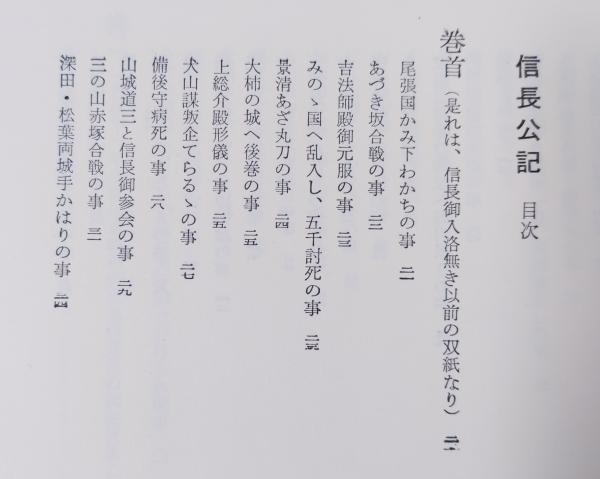 信長公記 目次
巻首（是れは、信長御入洛無き以前の双紙なり） 二一
尾張国かみ下わかちの事 二一
あづき坂合戦の事 二二
吉法師殿御元服の事 二三
みのゝ国へ乱入し、五千討死の事 二三
景清あざ丸刀の事 二四
大柿の城へ後巻の事 二五
上総介殿形儀の事 二五
犬山謀叛企てらるゝの事 二七
備後守病死の事 二八
山城道三と信長御参会の事 二九
三の山赤塚合戦の事 三二
深田・松葉両城手かはりの事 三四